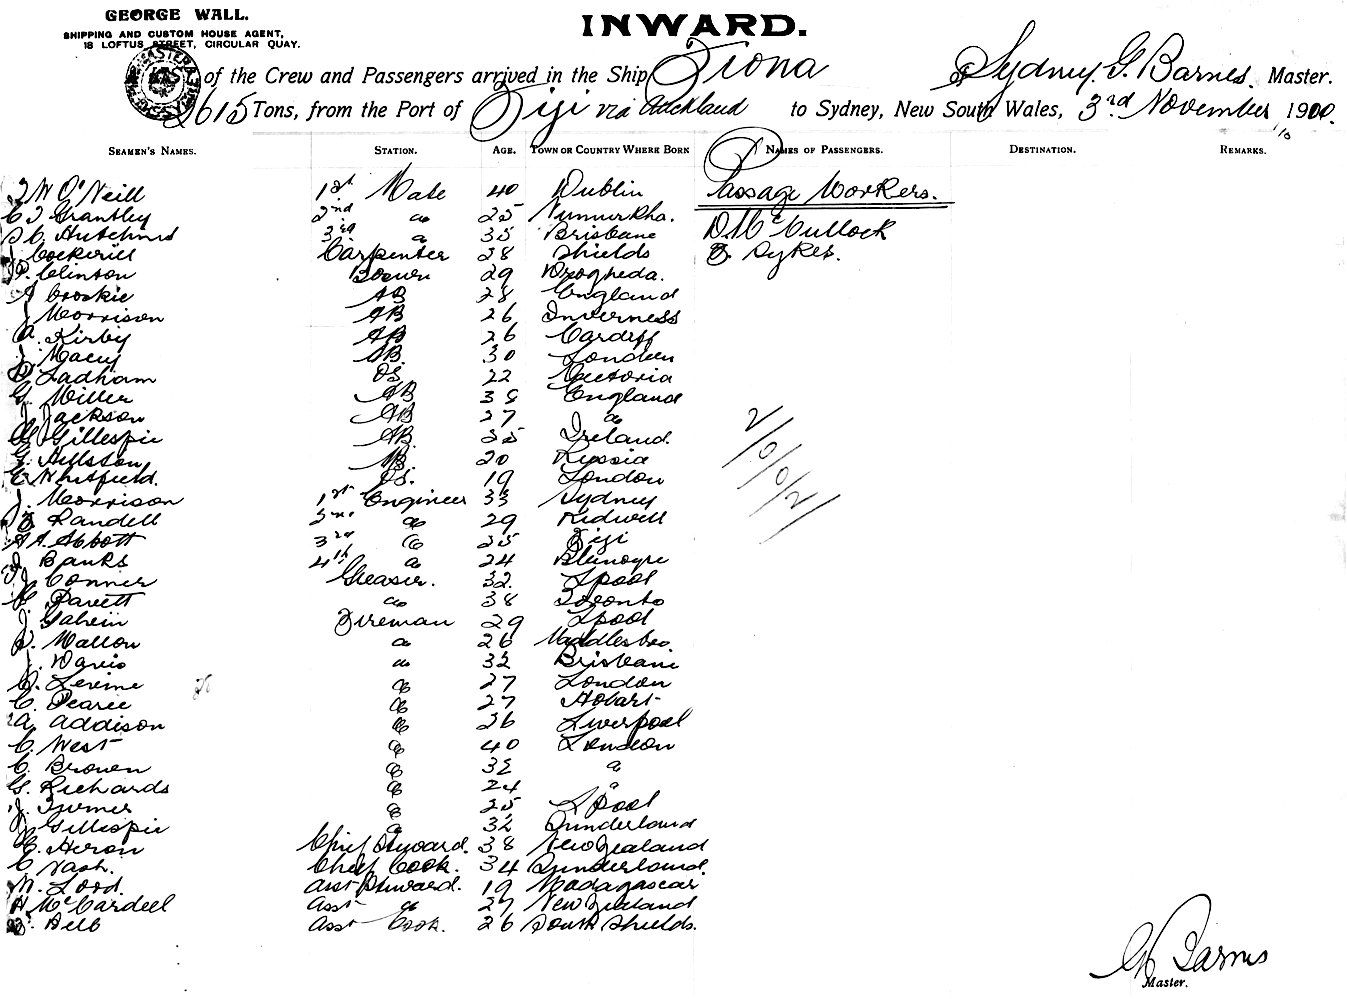 GEORGE WALL.
SHIPPING AND CUSTOM HOUSE AGENT,
18 LOFTUS STREET, CIRCULAR QUAY.
INWARD.
of the Crew and Passengers arrived in the Ship Fiona of Sydney. G. Barnes. Master.
2615 Tons, from the Port of Fiji via Auckland to Sydney, New South Wales, 3rd November 1900.
SEAMEN'S NAMES. STATION. AGE. TOWN OR COUNTRY WHERE BORN NAMES OF PASSENGERS. DESTINATION. REMARKS.
O'Neill 1st Mate 40 Dublin Passage Workers.
Grantley 2nd do 25
Hutchins 3rd do 35 Brisbane D. McCullock
Cockerill Carpenter 28 Shields Sykes.
P. Clinton Bosun 29 Drogheda.
Crookie AB 28 England
J Morrison AB 26 Inverness
A. Kirby AB 26 Cardiff
J. Macey AB. 30 London
Ladham OS 22 Victoria
G. Miller AB 38 England
J Jackson AB 27 do
Gillespie AB. 25 Ireland.
AB. 20 Russia
E Whitfield. OS. 19 London
J. Morrison 1st Engineer 33 Sydney
Randell 2nd do 29 Kidwell
A. Abbott 3rd do 25 Fiji
J. Banks 4th do 24
J Conner Greaser. 32. Lpool
Pavett do 38 Toronto
J. Fireman 29 Lpool
Mallon do 26 Middlesbro.
J. Davis do 32 Brisbane
do 27 London
C. Pearce do 27 Hobart
A Addison do 26 Liverpool
C. West do 40 London
C. Brown do 32 do
G. Richards do 24 "
J. Turner do 25 Lpool
J Gillespie do 32 Sunderland
E. Heron Chief Steward. 38 New Zealand
C Nash. Chief Cook. 34 Sunderland.
Lood. Asst Steward. 19 Madagascar
H McCardell Asst do 27 New Zealand
Bell Asst Cook. 26 South Shields.
G Barnes
Master.